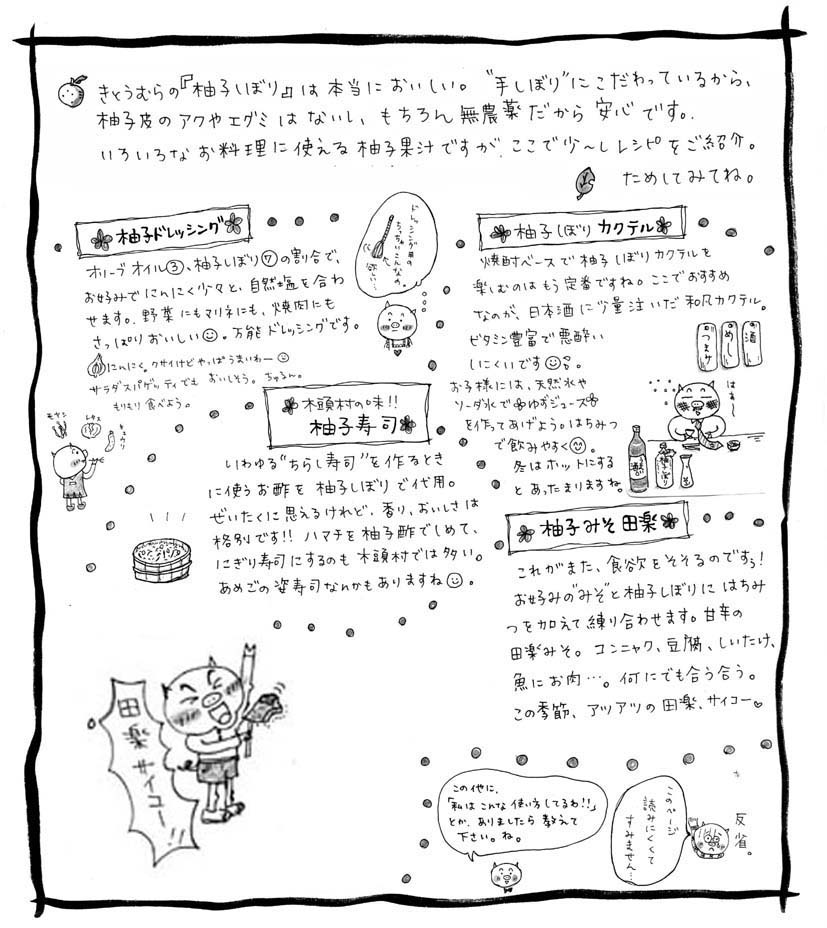 きとうむらの『柚子しぼり』は本当においしい。“手しぼり”にこだわっているから、
柚子皮のアクやエグミはないし、もちろん無農薬だから安心です。
いろいろなお料理に使える柚子果汁ですが、ここで少〜しレシピをご紹介。
ためしてみてね。
柚子ドレッシング
オリーブオイル③、柚子しぼり⑦の割合で、
お好みでにんにく少々と、自然塩を合わ
せます。野菜にもマリネにも、焼肉にも
さっぱりおいしい。万能ドレッシングです。
にんにく。クサイけどやっぱうまいわー
サラダスパゲッティでもおいしそう。ちゅるん。
もりもり食べよう。
ドレッシング用の
ちっちゃいこんなの。
欲しい…
モヤシ
レタス
キュウリ
木頭村の味!!
柚子寿司
いわゆる“ちらし寿司”を作るとき
に使うお酢を柚子しぼりで代用。
ぜいたくに思えるけれど、香り、おいしさは
格別です!! ハマチを柚子酢でしめて、
にぎり寿司にするのも木頭村では多い。
あめごの姿寿司なんかもありますね
田楽サイコー!!
柚子しぼりカクテル
焼酎ベースで柚子しぼりカクテルを
楽しむのはもう定番ですね。ここでおすすめ
なのが、日本酒に少量注いだ和風カクテル。
ビタミン豊富で悪酔い
しにくいです
お子様には、天然水や
ソーダ水でゆずジュース
を作ってあげよう。はちみつ
で飲みやすく。
冬はホットにする
とあったまりますね。
酒
めし
つまみ
はぁ〜
柚子しぼり
柚子みそ田楽
これがまた、食欲をそそるのですぅ!
お好みのみそと柚子しぼりにはちみ
つを加えて練り合わせます。甘辛の
田楽みそ。コンニャク、豆腐、しいたけ、
魚にお肉…。何にでも合う合う。
この季節、アツアツの田楽、サイコー♡
この他に、
「私はこんな使い方してるわ!!」
とか、ありましたら教えて
下さい。ね。
このページ
読みにくくて
すみません…
反省。